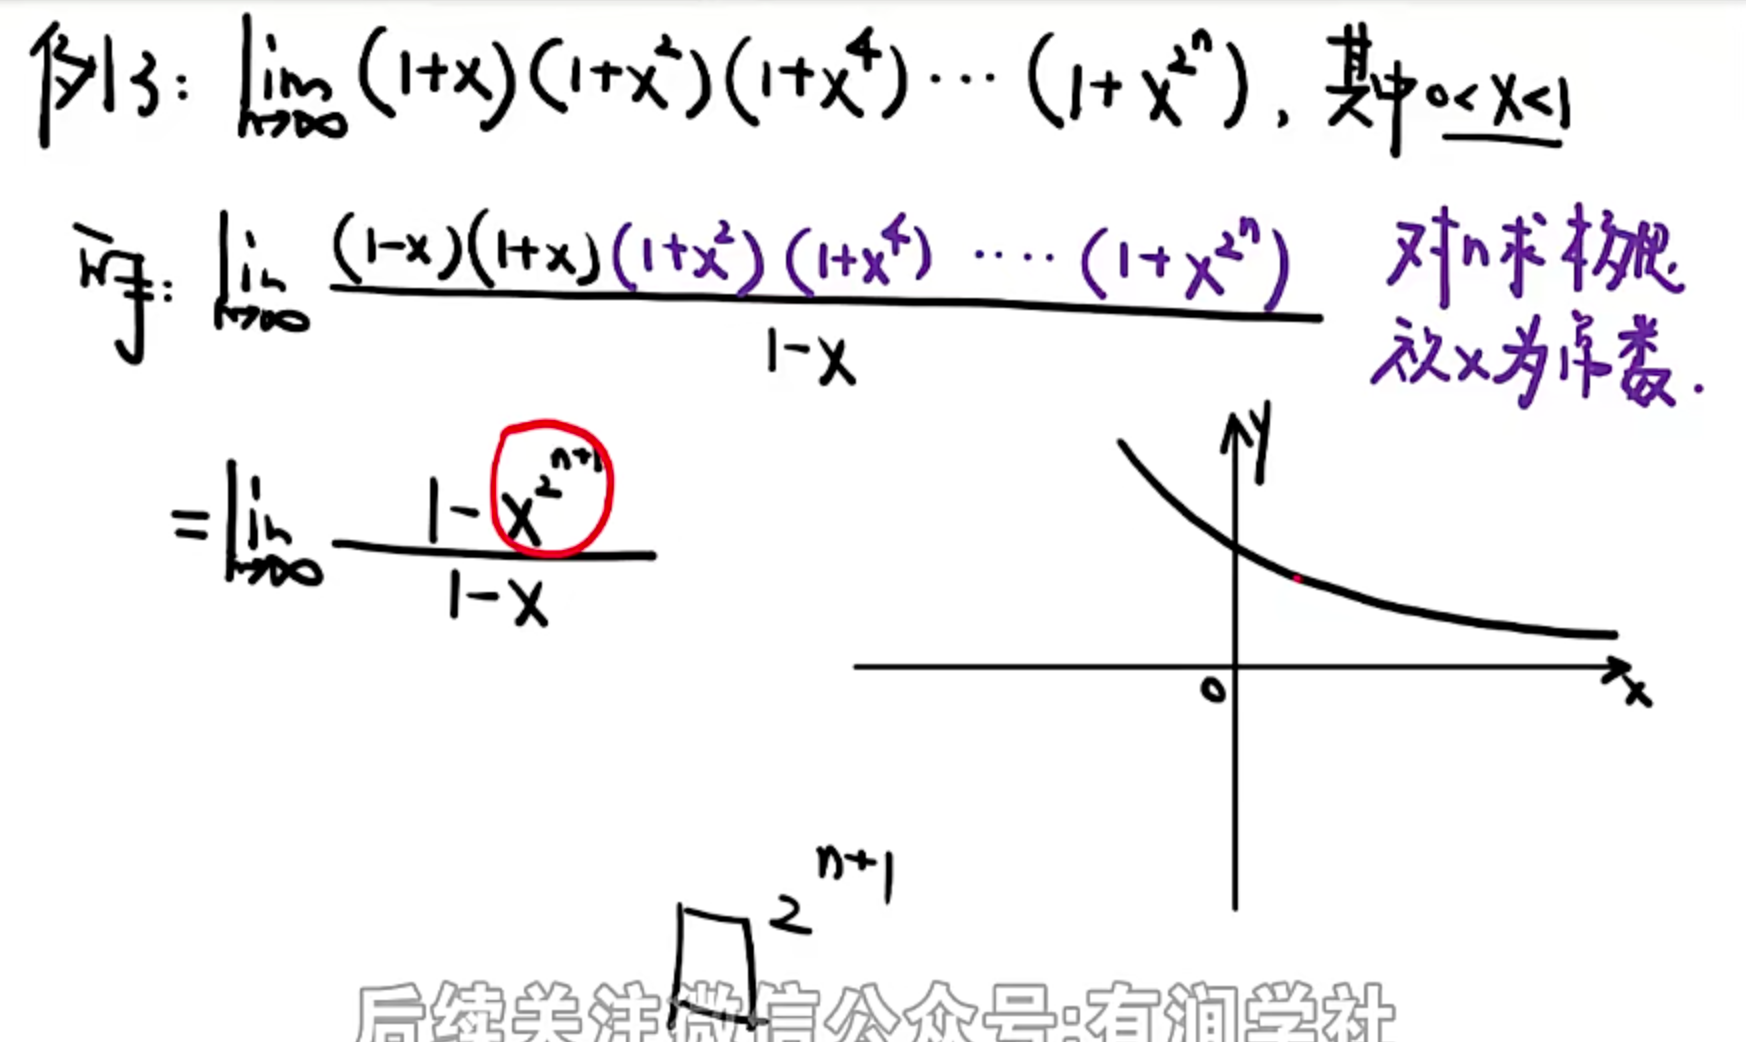 例3: lim n→∞ (1+x)(1+x²)(1+x⁴)⋯(1+x^{2^n}), 其中0<x<1
可得: lim n→∞ (1-x)(1+x)(1+x²)(1+x⁴)⋯(1+x^{2^n}) / (1-x) 对n求极限
故x为常数.
= lim n→∞ (1-x^{2^{n+1}}) / (1-x)
y
0
x
□^{2^{n+1}}
后续关注微信公众号:有润学社